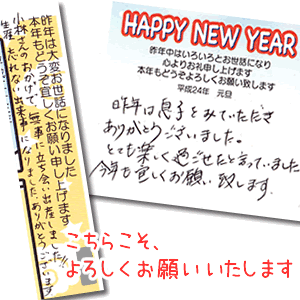 昨年は大変お世話になりました
本年もどうぞ宜しくお願い申し上げます
小林さんのおかげで、無事に立ち会い出産しました!!
生涯忘れない出来事になりました。ありがとうございます
HAPPY NEW YEAR
昨年中はいろいろとお世話になり
心よりお礼申し上げます
本年もどうぞよろしくお願い致します
平成24年 元旦
昨年は息子をみていただき
ありがとうございました。
とても楽しく過ごせたと言っていました
今年も宜しくお願い致します。
こちらこそ、
よろしくお願いいたします